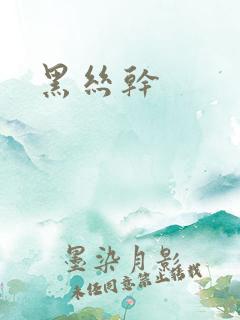 黑絲幹
墨染月影
未经同意禁止转载